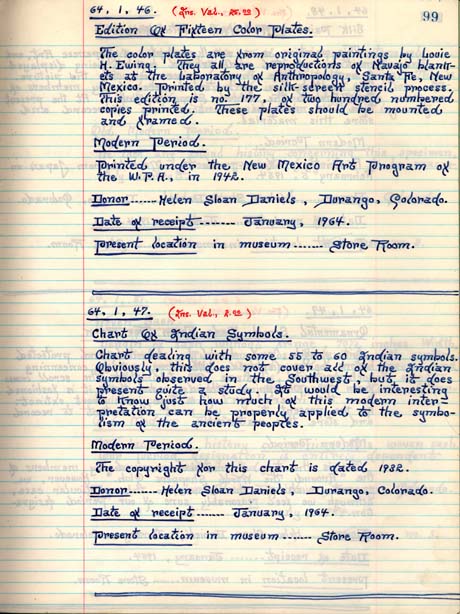 99
64. 1. 46. (Ins. Val., 25.00)
Edition Of Fifteen Color Plates.
The color plates are from original paintings by Louie
H. Ewing. They all are reproductions of Navajo blank-
ets at the Laboratory of Anthropology, Santa Fe, New
Mexico. Printed by the silk-screen stencil process.
This edition is no. 177, of two hundred numbered
copies printed. These plates should be mounted
and framed.
Modern Period.
Printed under the New Mexico Art Program of
the W.P.A., in 1942.
Donor ----- Helen Sloan Daniels, Durango, Colorado.
Date of receipt ------- January, 1964.
Present location in museum ------ Store Room.
64. 1. 47. (Ins. Val., 2.00)
Chart Of Indian Symbols.
Chart dealing with some 55 to 60 Indian symbols.
Obviously, this does not cover all of the Indian
symbols observed in the Southwest, but it does
present quite a study. It would be interesting
to know just how much of this modern inter-
pretation can be properly applied to the symbo-
lism of the ancient peoples.
Modern Period.
The copyright for this chart is dated 1932.
Donor ------ Helen Sloan Daniels, Durango, Colorado.
Date of receipt ------ January, 1964.
Present location in museum ----- Store Room.